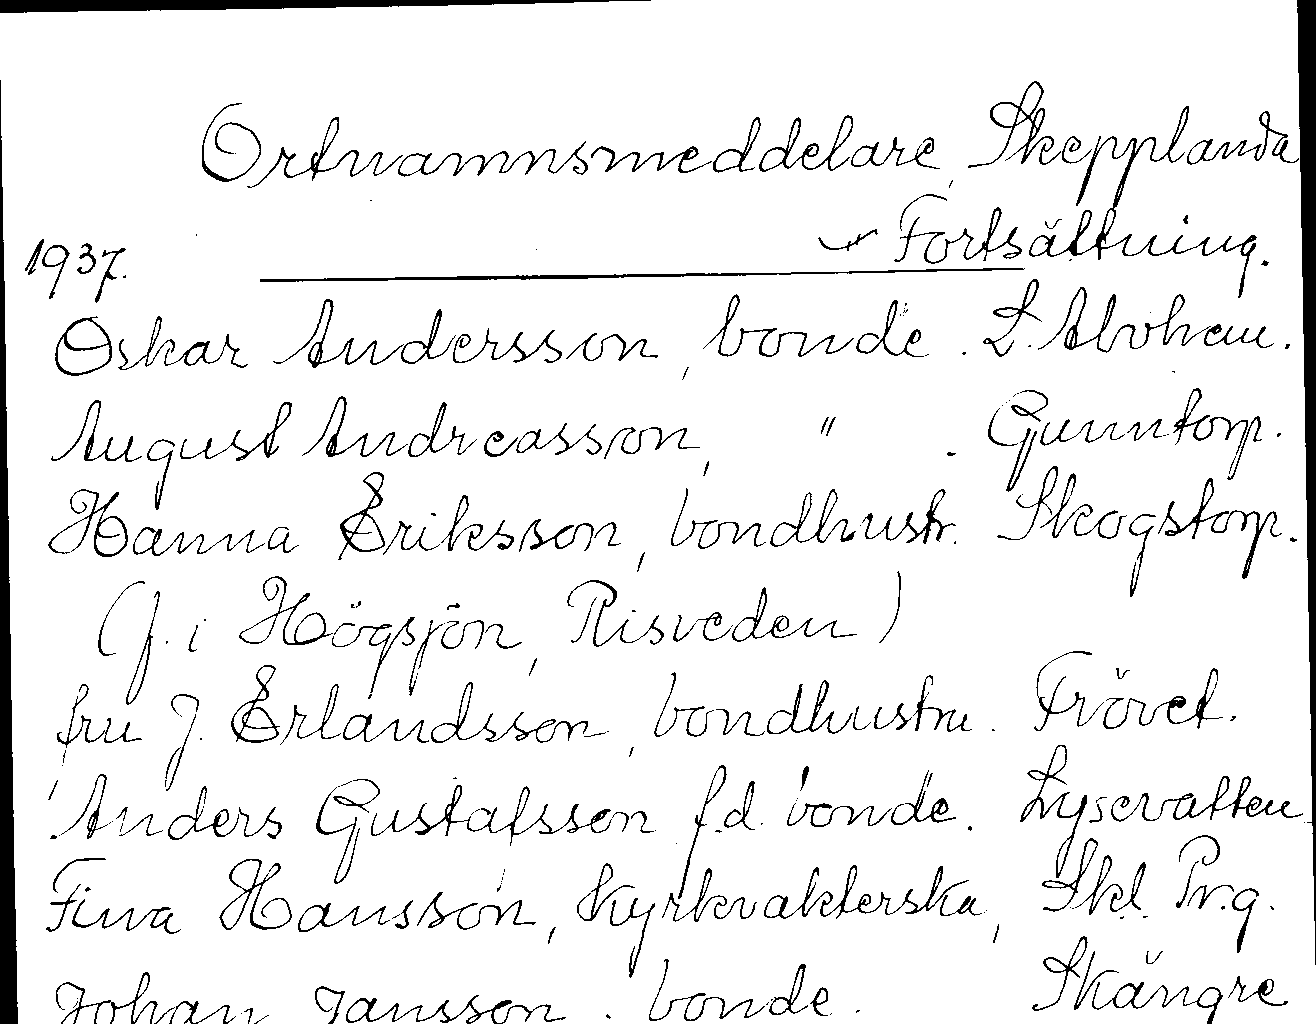 Ortnamnsmeddelare, Skepplanda
Fortsättning.
1937.
Oskar Andersson, bonde. L. Alvhem.
August Andreasson, " . Gunntorp.
Hanna Eriksson, bondhustr. Skogstorp.
(f. i Högsjön, Risveden)
fru J. Erlandsson, bondhustru. Frövet.
Anders Gustafsson f.d. bonde. Lysevatten
Fina Hansson, Kyrkvakterska, Skl. Pr.g.
Johan Jansson. bonde. Skångre